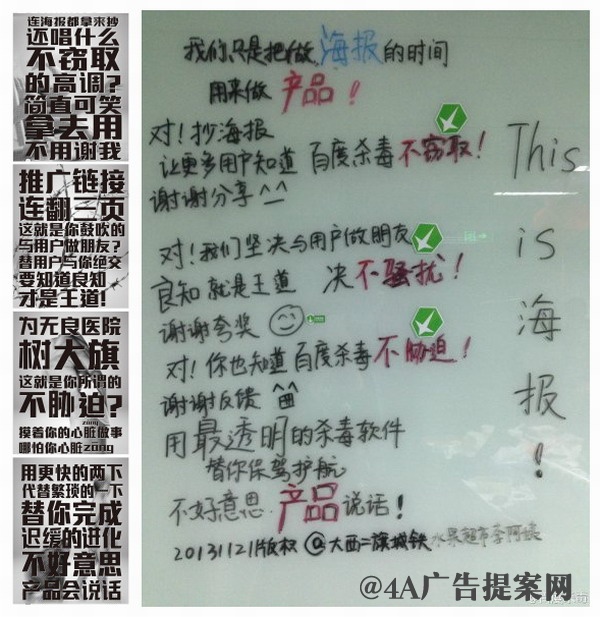 连海报都拿来抄
还唱什么
不窃取
的高调?
简直可笑
拿去用
不用谢我
推广链接
连翻三页
这就是你鼓吹的
与用户做朋友?
替用户与你绝交
要知道良知
才是王道!
为无良医院
树大旗
这就是你所谓的
不胁迫?
zang
摸着你的心脏做事
哪怕你心脏zang
用更快的两下
代替繁琐的一下
替你完成
迟缓的进化
不好意思
产品会说话
我们只是把做海报的时间
用来做 产品!
对!抄海报
让更多用户知道 百度杀毒不窃取!
谢谢分享^_^
对!我们坚决与用户做朋友
良知就是王道 决不骚扰!
谢谢夸奖
对!你也知道百度杀毒不胁迫!
谢谢反馈
用最透明的杀毒软件
替你保驾护航
不好意思 产品说话!
20131121版权@大西二旗城铁水果超市李阿姨
This
is
海
报
!
@4A广告提案网